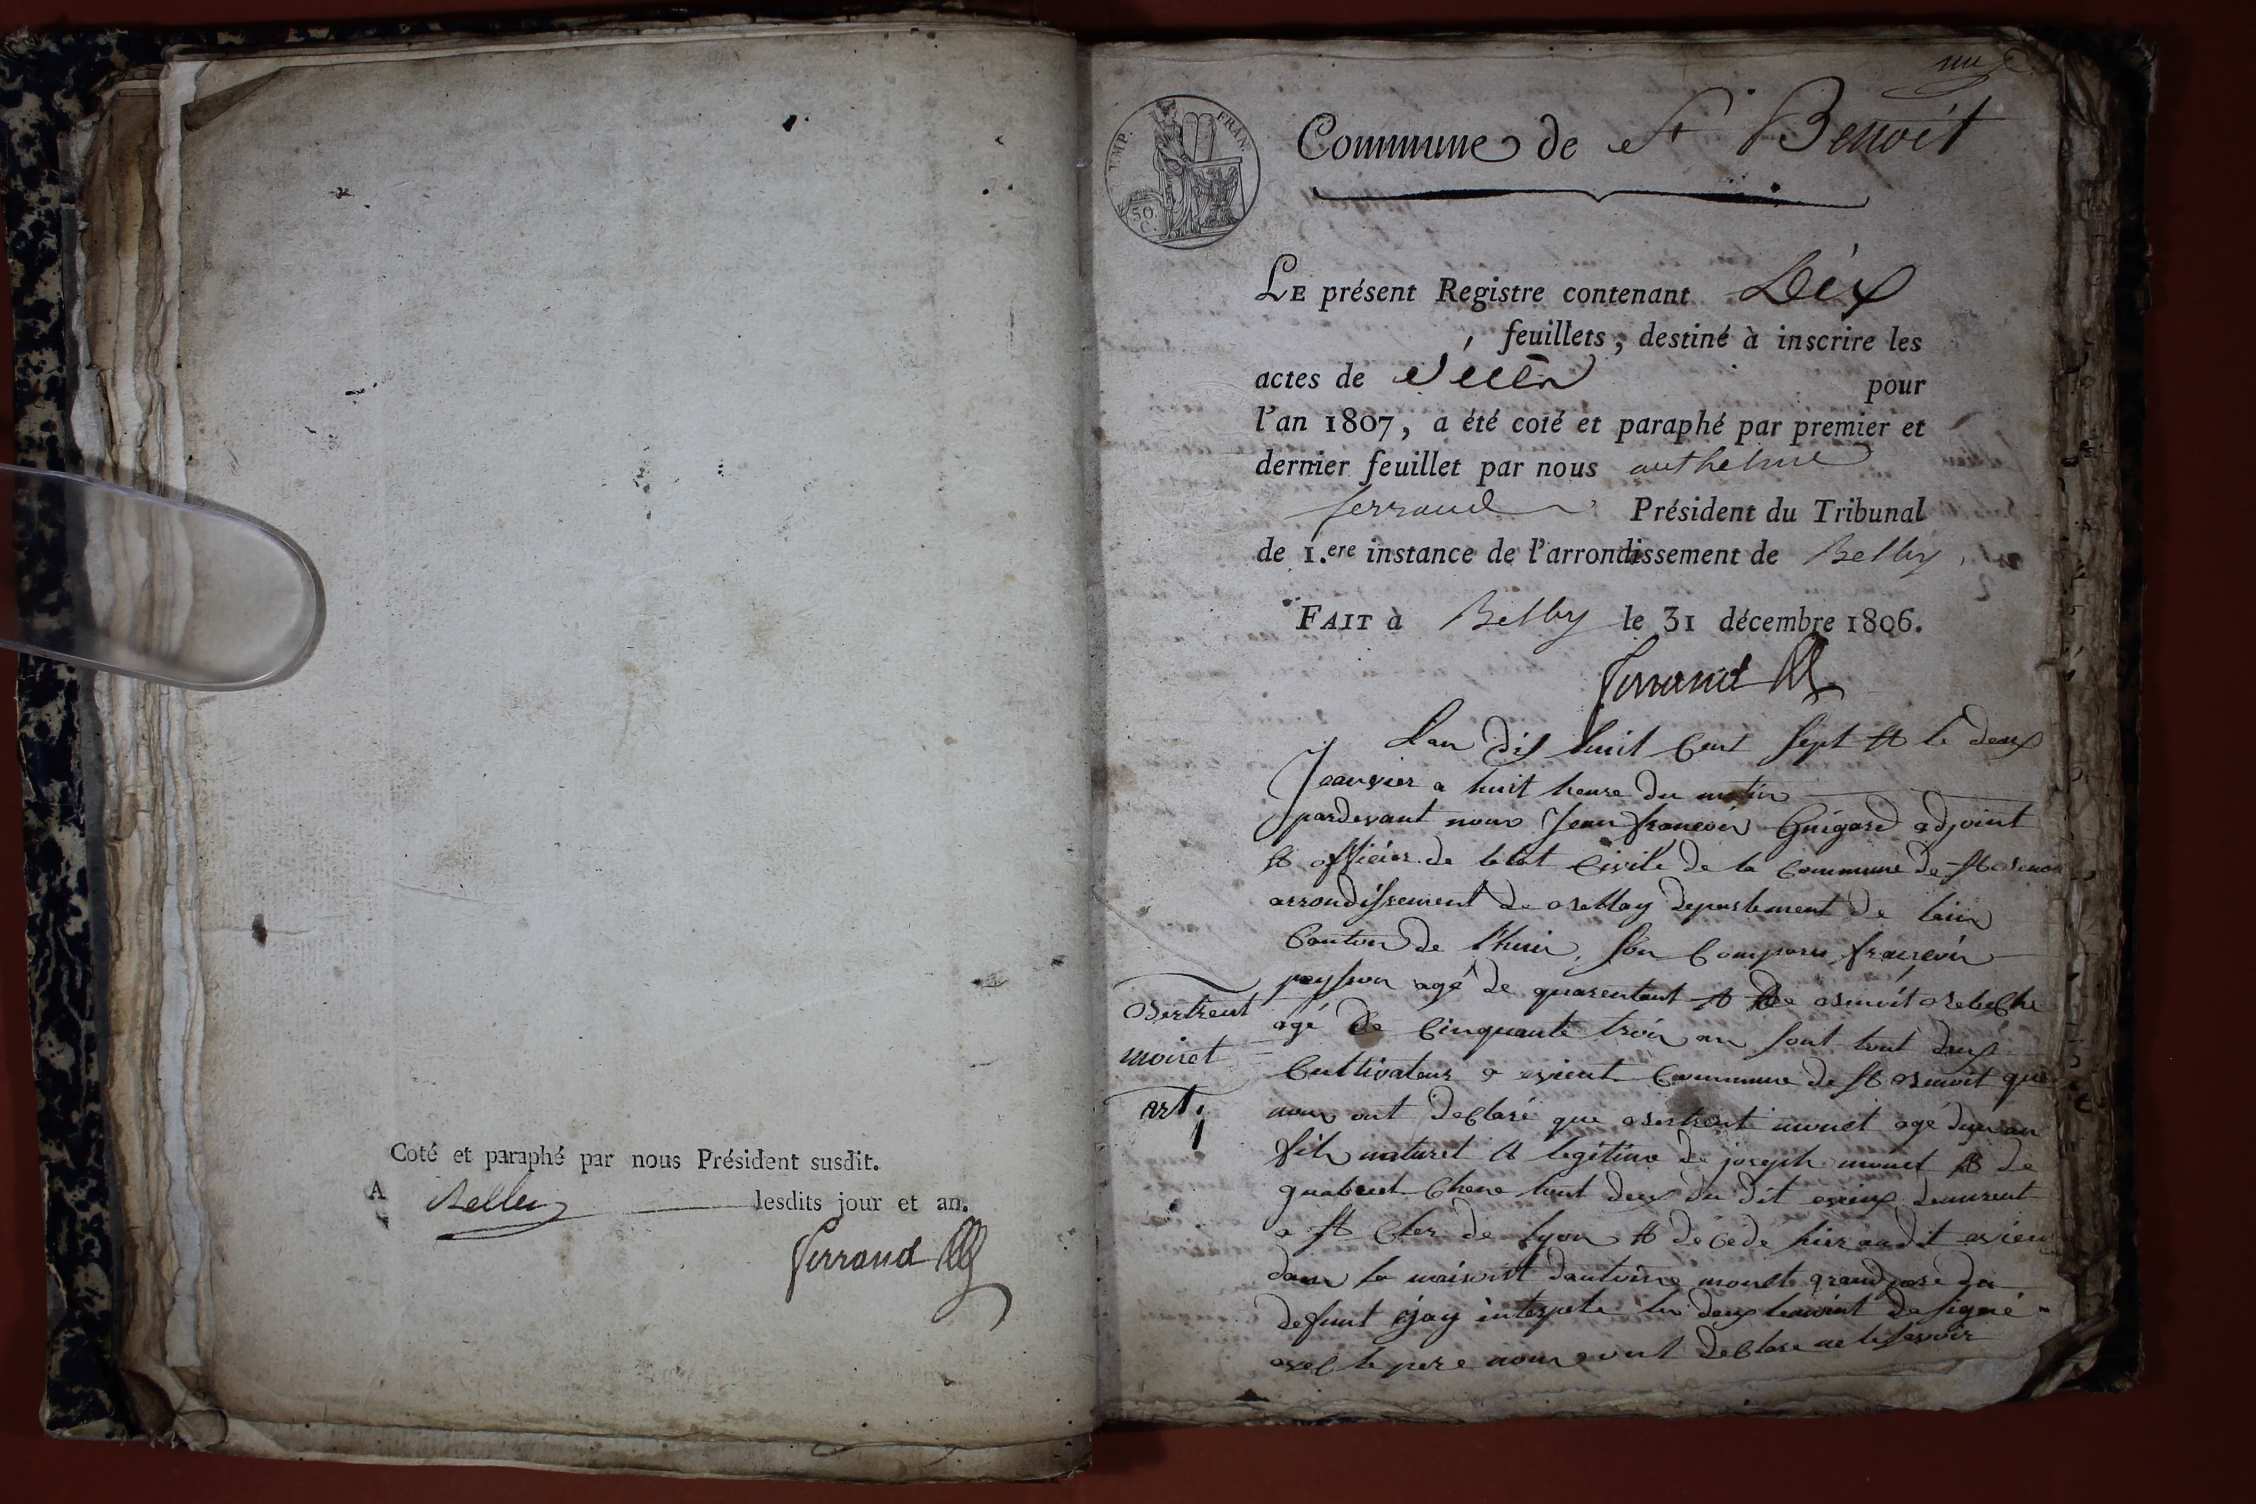 Coté et paraphé par nous Président susdit.
A Belley lesdits jour et an.
Ferrand
une
IMP. FRAN.
50. C.
Commune de St Benoit
LE présent Registre contenant Dix
feuillets, destiné à inscrire les
actes de décès pour
l'an 1807, a été coté et paraphé par premier et
dernier feuillet par nous anthelme
ferrand Président du Tribunal
de 1.ere instance de l'arrondissement de Belley,
FAIT à Belley le 31 décembre 1806.
Ferrand
Lan dix huit Cent Sept & le deux
Jeanvier a huit heure du matin
pardevant nous Jean françois Guigard adjoint
& officier de letat Civile de la Commune de St Benoit
arrondissement de Bellay departement de lain
Canton de lhuis, son Comparu françois
peysson agé de quarentant & de Benoit
agé de Cinquante trois an sont tout deux
Cultivateur a evieut Commune de St Benoit que
nous ont declaré que Bertrent moiret agé dun an
fils naturel & legitime de joseph moiret & de
Chene tout deux du dit evieux demeurent
a St Cler de lyon & décede hier audit evieu
dans la maison dantoine moiret grand pere du
defunt ejay interpele les deux temoint de signé
avec le pere nous ont declare ne le savoir
Bertrent
moiret
art 1